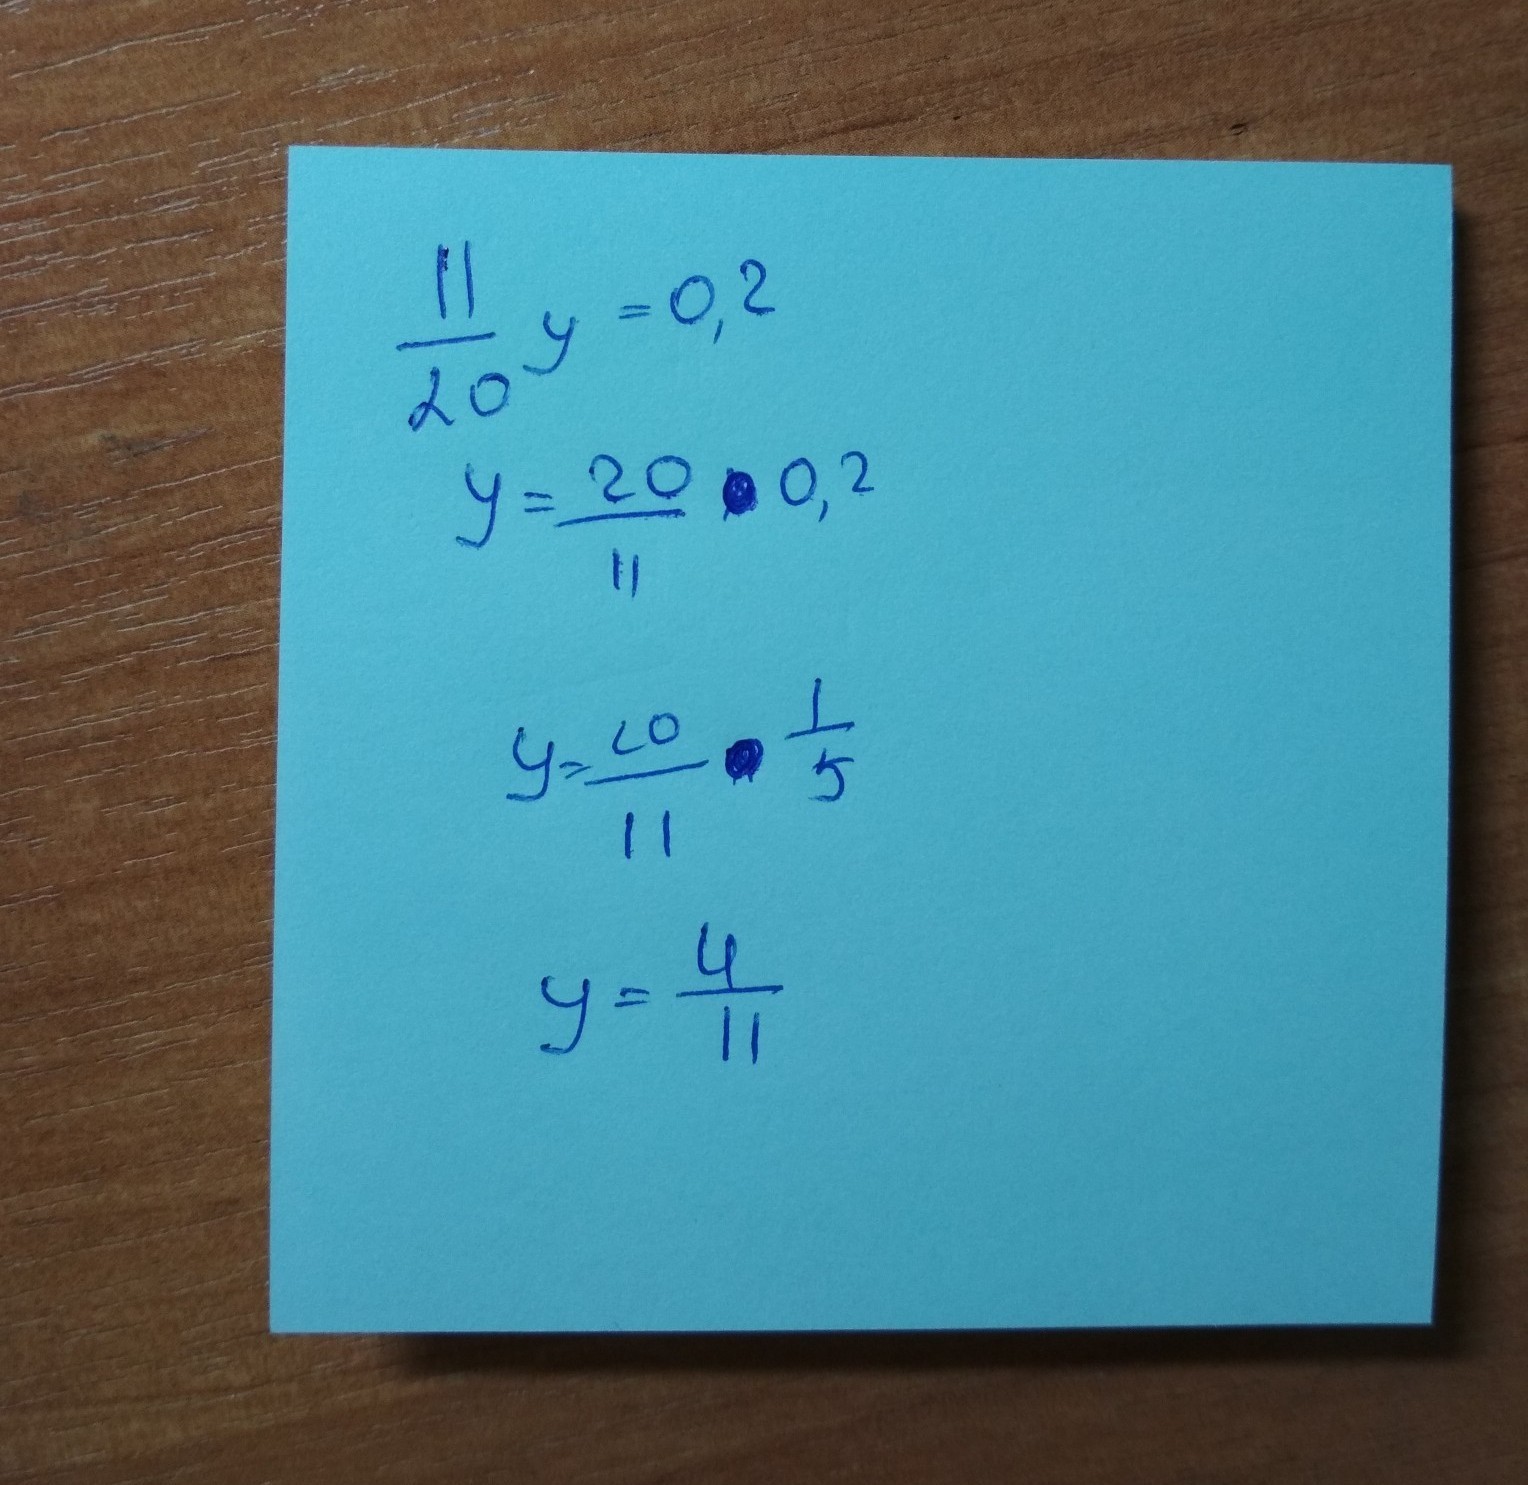 11/20 y = 0,2
y = 20/11 • 0,2
y = 20/11 • 1/5
y = 4/11